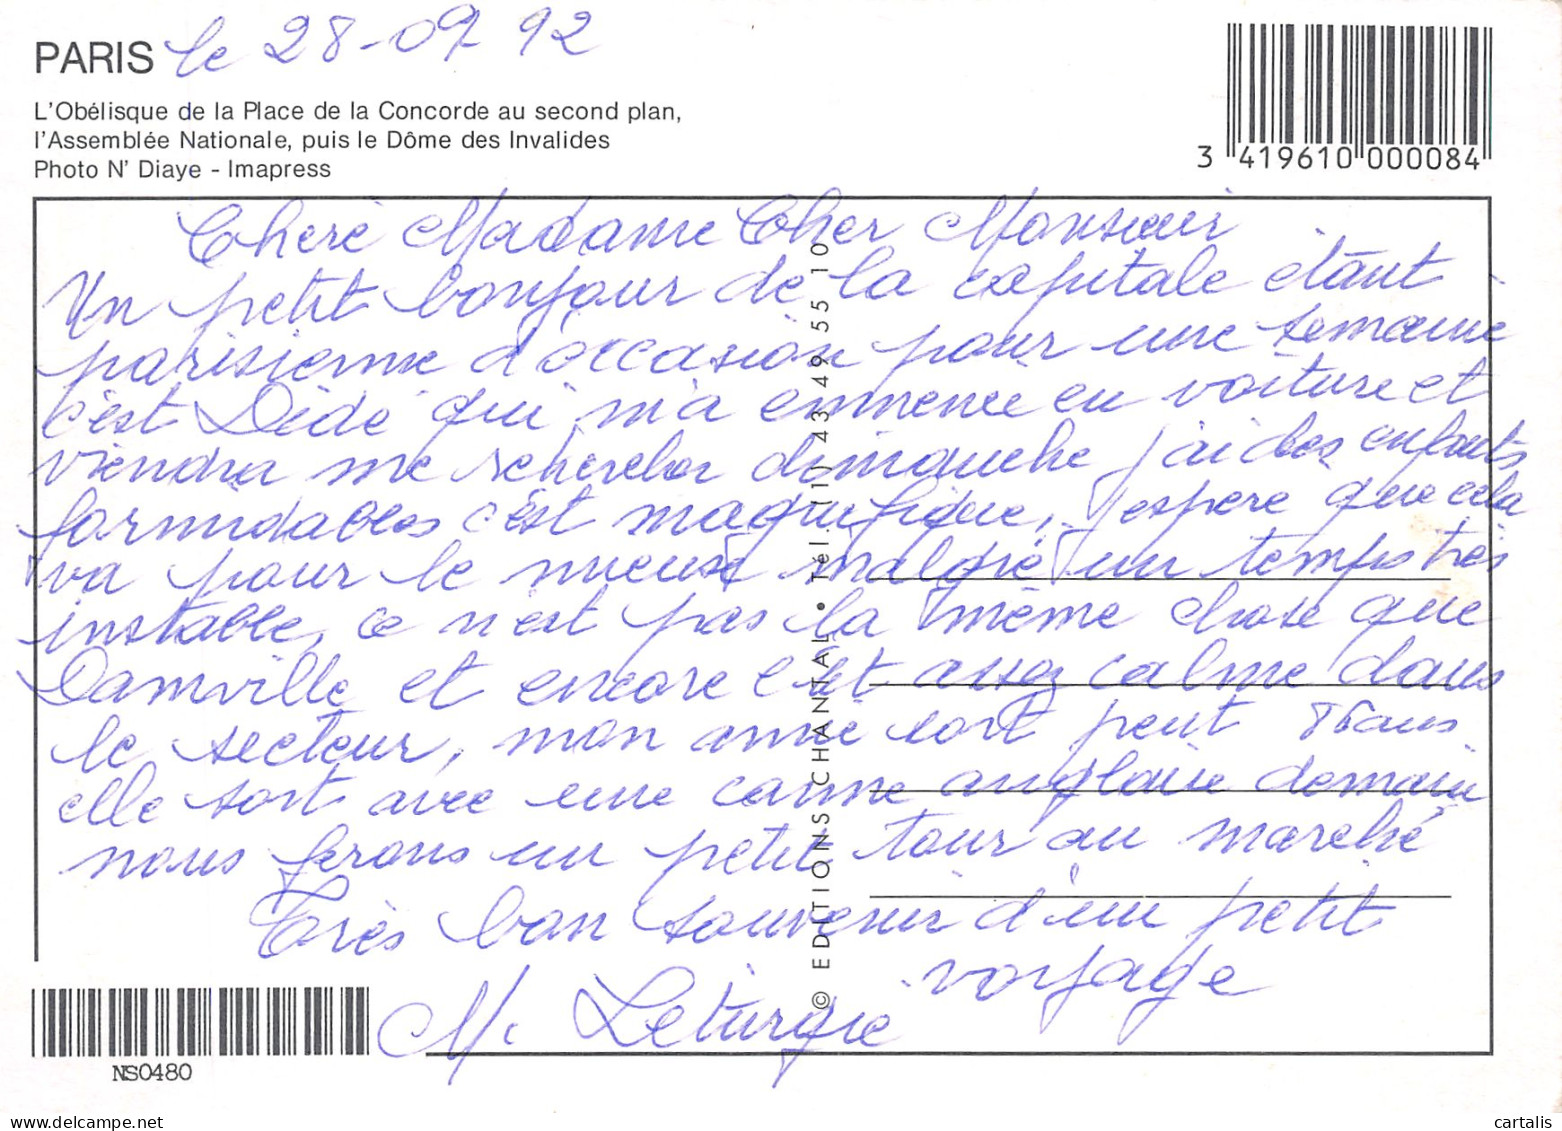 PARIS le 28-09-92
L'Obélisque de la Place de la Concorde au second plan,
l'Assemblée Nationale, puis le Dôme des Invalides
Photo N' Diaye - Imapress
3 419610 000084
Chère Madame Cher Monsieur
Un petit bonjour de la capitale étant
parisienne d'occasion pour une semaine
c'est Dédé qui m'a emmenée en voiture et
viendra me rechercher dimanche j'ai des enfants
formidables c'est magnifique, j'espère que cela
va pour le mieux malgré un temps très
instable, ce n'est pas la même chose que
Damville et encore c'est assez calme dans
le secteur, mon amie sort peut mais
elle sort avec une canne anglaise demain
nous ferons un petit tour au marché
Très bon souvenir d'un petit
voyage
M. Leturgie
© EDITIONS CHANTAL • Tél. (1) 43 49 55 10
NS0480
cartalis